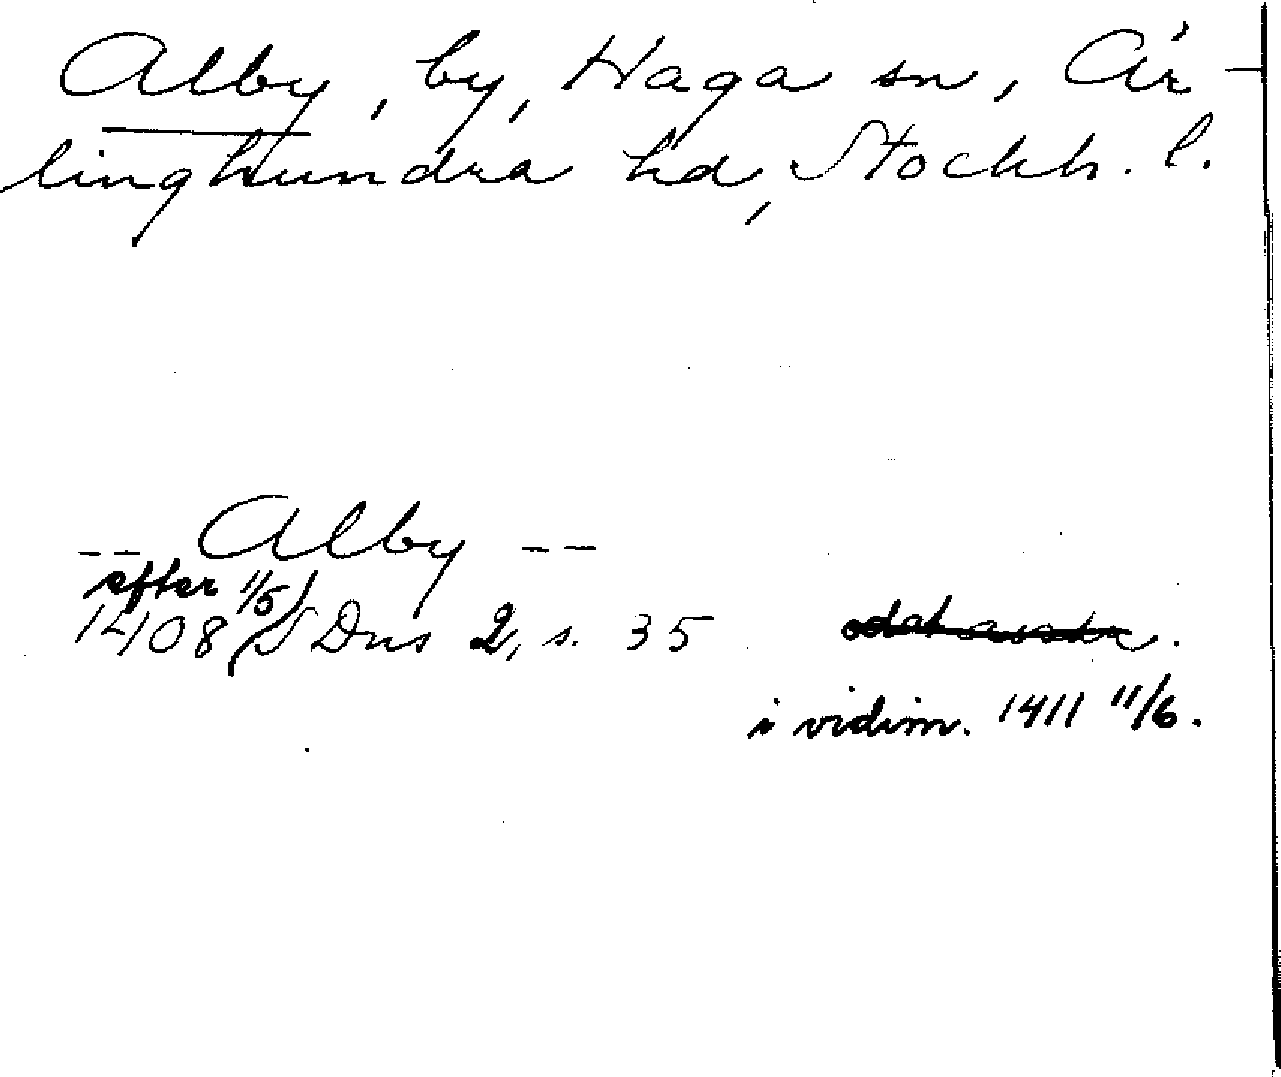 Alby, by, Haga sn, Är-
linghundra hd, Stockh. l.
-- Alby --
efter 1/5)
1408 SDns 2, s. 35
i vidim. 1411 11/6.